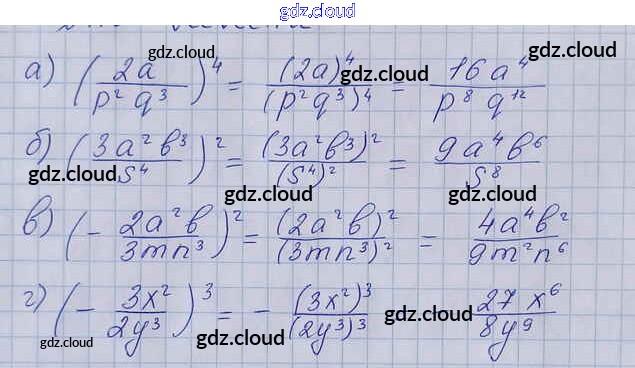 gdz.cloud
gdz.cloud gdz.cloud
а) (2a / p² q³)⁴ = (2a)⁴ / (p²q³)⁴ = 16a⁴ / p⁸ q¹²
gdz.cloud gdz.cloud
б) (3a²b³ / s⁴)² = (3a²b³)² / (s⁴)² = 9a⁴b⁶ / s⁸
gdz.cloud gdz.cloud gdz.cloud
в) (- 2a²b / 3mn³)² = (2a²b)² / (3mn³)² = 4a⁴b² / 9m²n⁶
gdz.cloud
г) (- 3x² / 2y³)³ = - (3x²)³ / (2y³)³ 27x⁶ / 8y⁹
gdz.cloud gdz.cloud gdz.cloud gdz.cloud